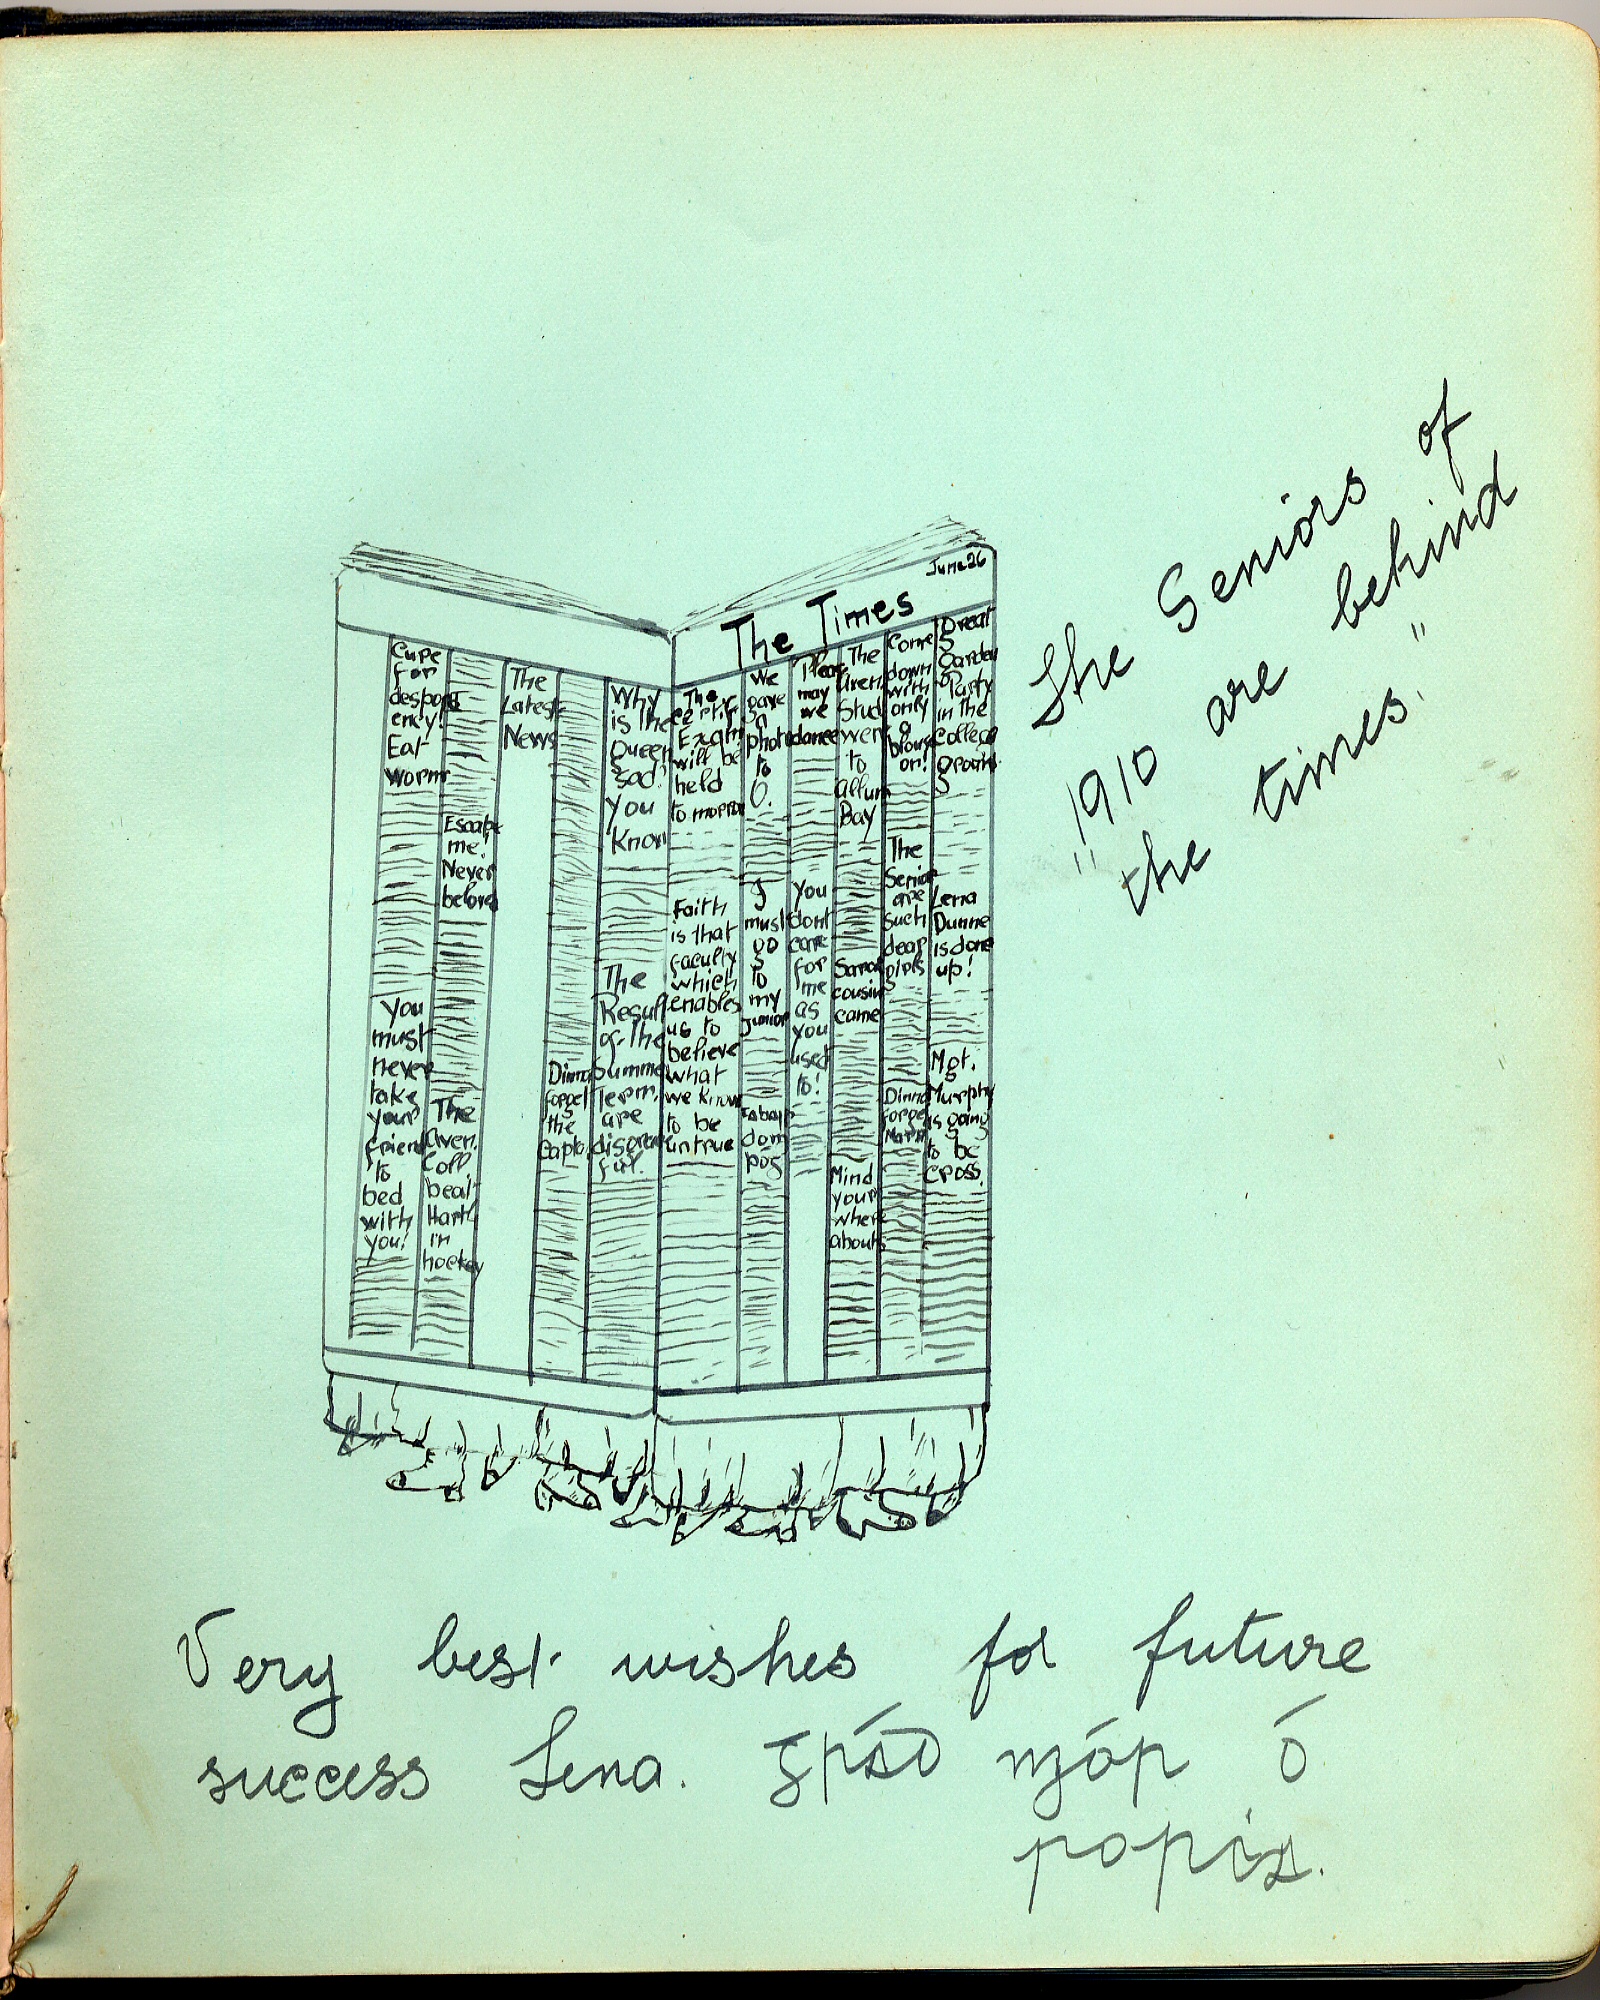 June 26
The Times
Cure
for
despond
ency!
Eat
worms
You
must
never
take
your
friend
to
bed
with
you!
Escape
me!
Never
beloved
The
Coll.
beat
in
hockey
The
Latest
News
forget
the
Why
is the
Queen
sad?
You
Know
The
Result
of the
Summer
Term.
are
disgrace
ful.
The
Exam
will be
held
to morrow
Faith
is that
faculty
which
enables
us to
believe
what
we know
to be
untrue
We
gave
a
photo
to
O.
I
must
go
to
my
Junior
Tabair
dom
póg
Please
may
we
dance
You
dont
care
for
me
as
you
used
to!
The
Stud
went
to
Allum
Bay
cousin
came
Mind
your
where
abouts
Come
down
with
only
a
blouse
on!
The
Seniors
are
such
dear
girls
forget
Great
Garden
Party
in the
College
grounds
Lena
Dunne
is done
up!
Mgt.
Murphy
is going
to be
cross.
The Seniors of
"1910 are behind
the times."
Very best wishes for future
success Lena. Ᵹrád mór ó